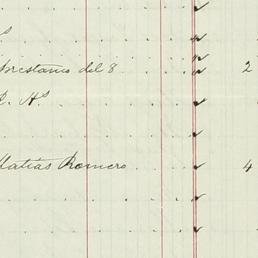 s
prestamo del 8 2
C. Hs
Matías Romero 4